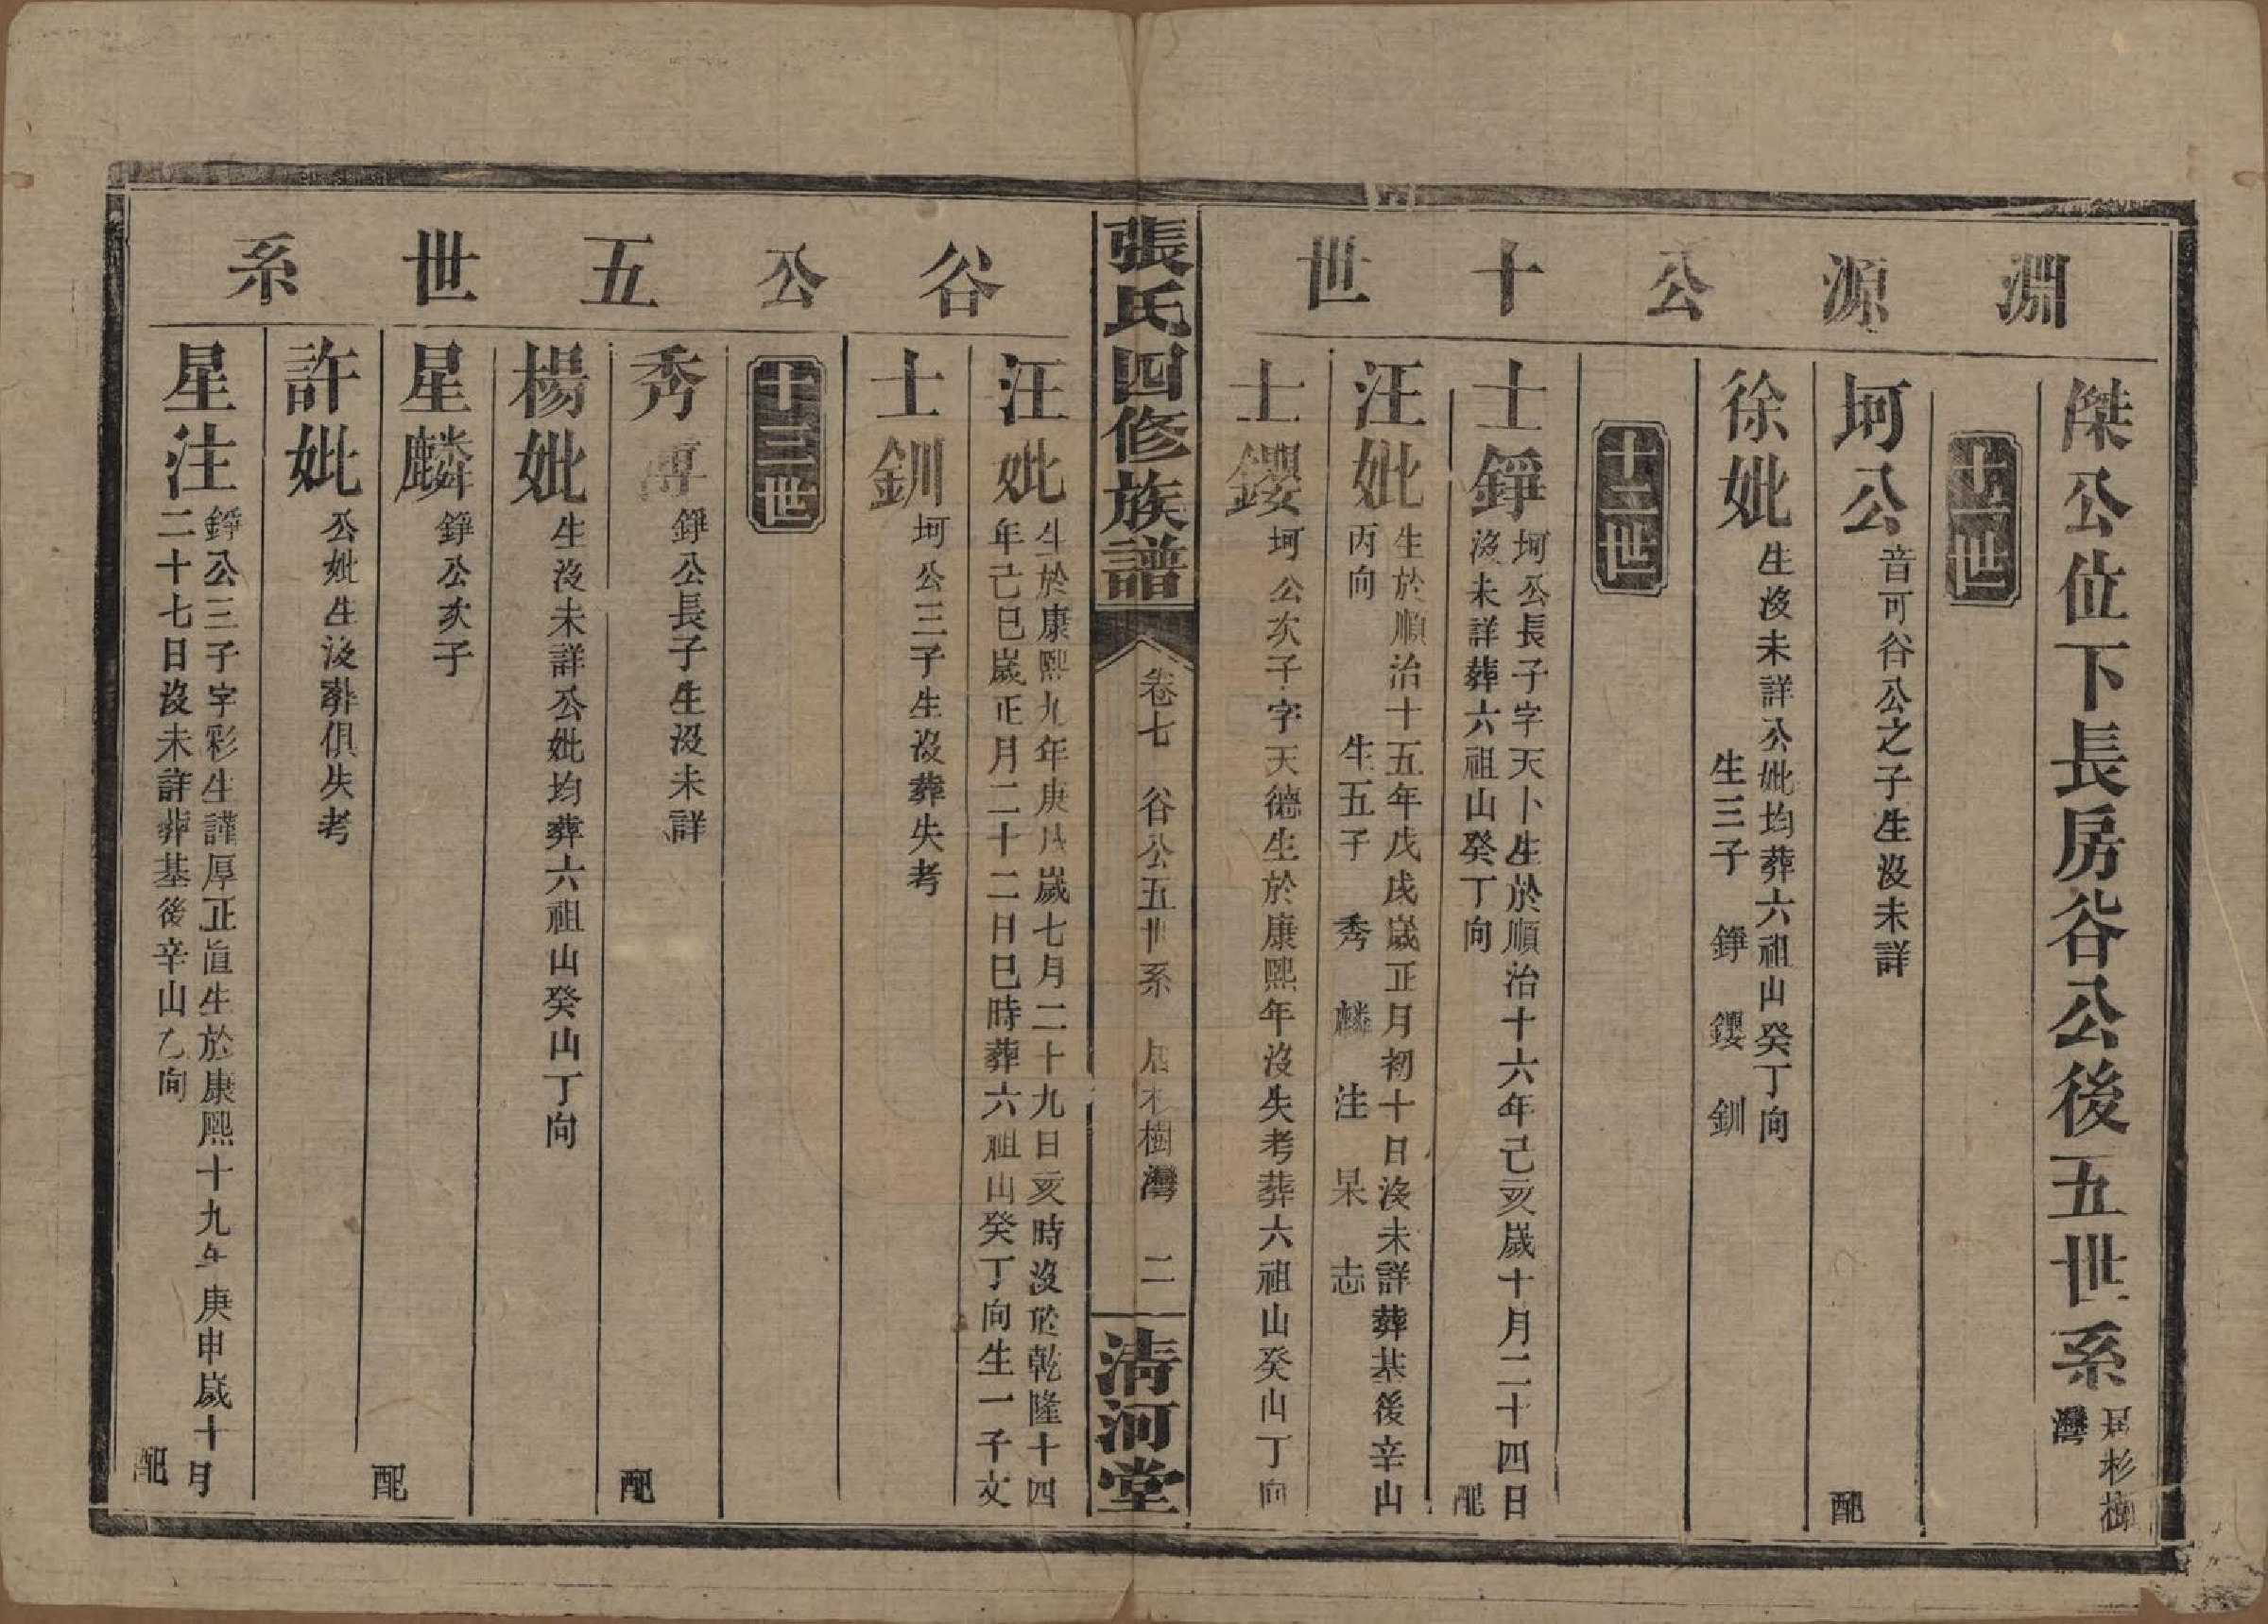 淵源公十世
傑公位下長房谷公後五世系 居杉樹灣
十一世
坷公 音可谷公之子生沒未詳 配
徐妣 生沒未詳公妣均葬六祖山癸丁向
生三子 錚 鑻 釧
十二世
士錚 坷公長子字天卜生於順治十六年己亥歲十月二十四日
沒未詳葬六祖山癸丁向 配
汪妣 生於順治十五年戊戌歲正月初十日沒未詳葬基後辛山
丙向 生五子 秀 麟 注 杲 志
士鑻 坷公次子字天德生於康熙年沒失考葬六祖山癸山丁向
張氏四修族譜 卷七 谷公五世系 居杉樹灣 二 清河堂
谷公五世系
汪妣 生於康熙九年庚戌歲七月二十九日亥時沒於乾隆十四
年己巳歲正月二十二日巳時葬六祖山癸丁向生一子文
士釧 坷公三子生沒葬失考
十三世
秀 錚公長子生沒未詳 配
楊妣 生沒未詳公妣均葬六祖山癸山丁向
星麟 錚公次子 配
許妣 公妣生沒葬俱失考
星注 錚公三子字彩生謹厚正直生於康熙十九年庚申歲十月
二十七日沒未詳葬基後辛山乙向 配